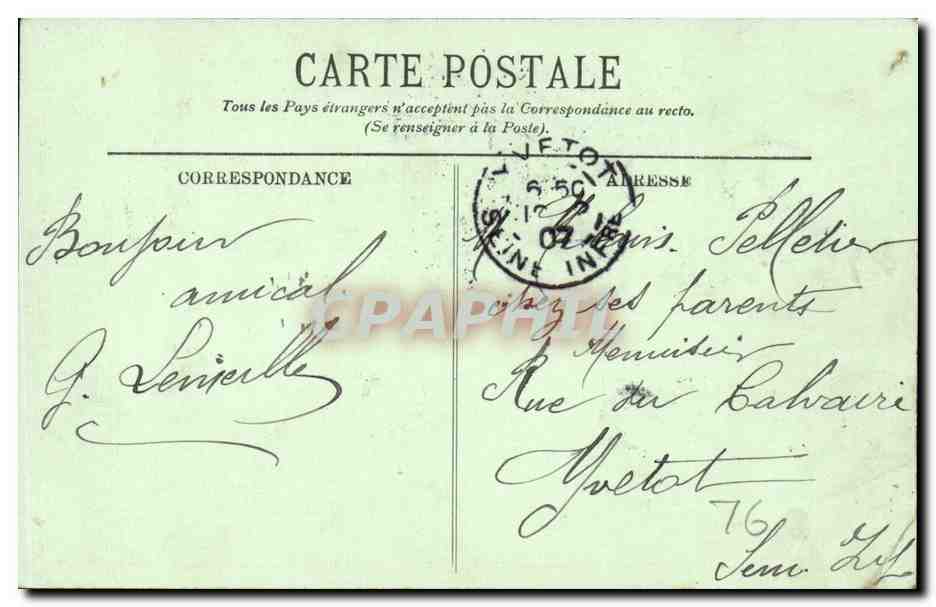 CARTE POSTALE
Tous les Pays étrangers n'acceptent pas la Correspondance au recto.
(Se renseigner à la Poste).
CORRESPONDANCE
ADRESSE
YVETOT
6 50
07
SEINE INFRE
Bonjour
amical
G.
Louis Pelletier
chez ses parents
Menuisier
Rue du Calvaire
Yvetot
76
Sein Inf
CPAPHIL